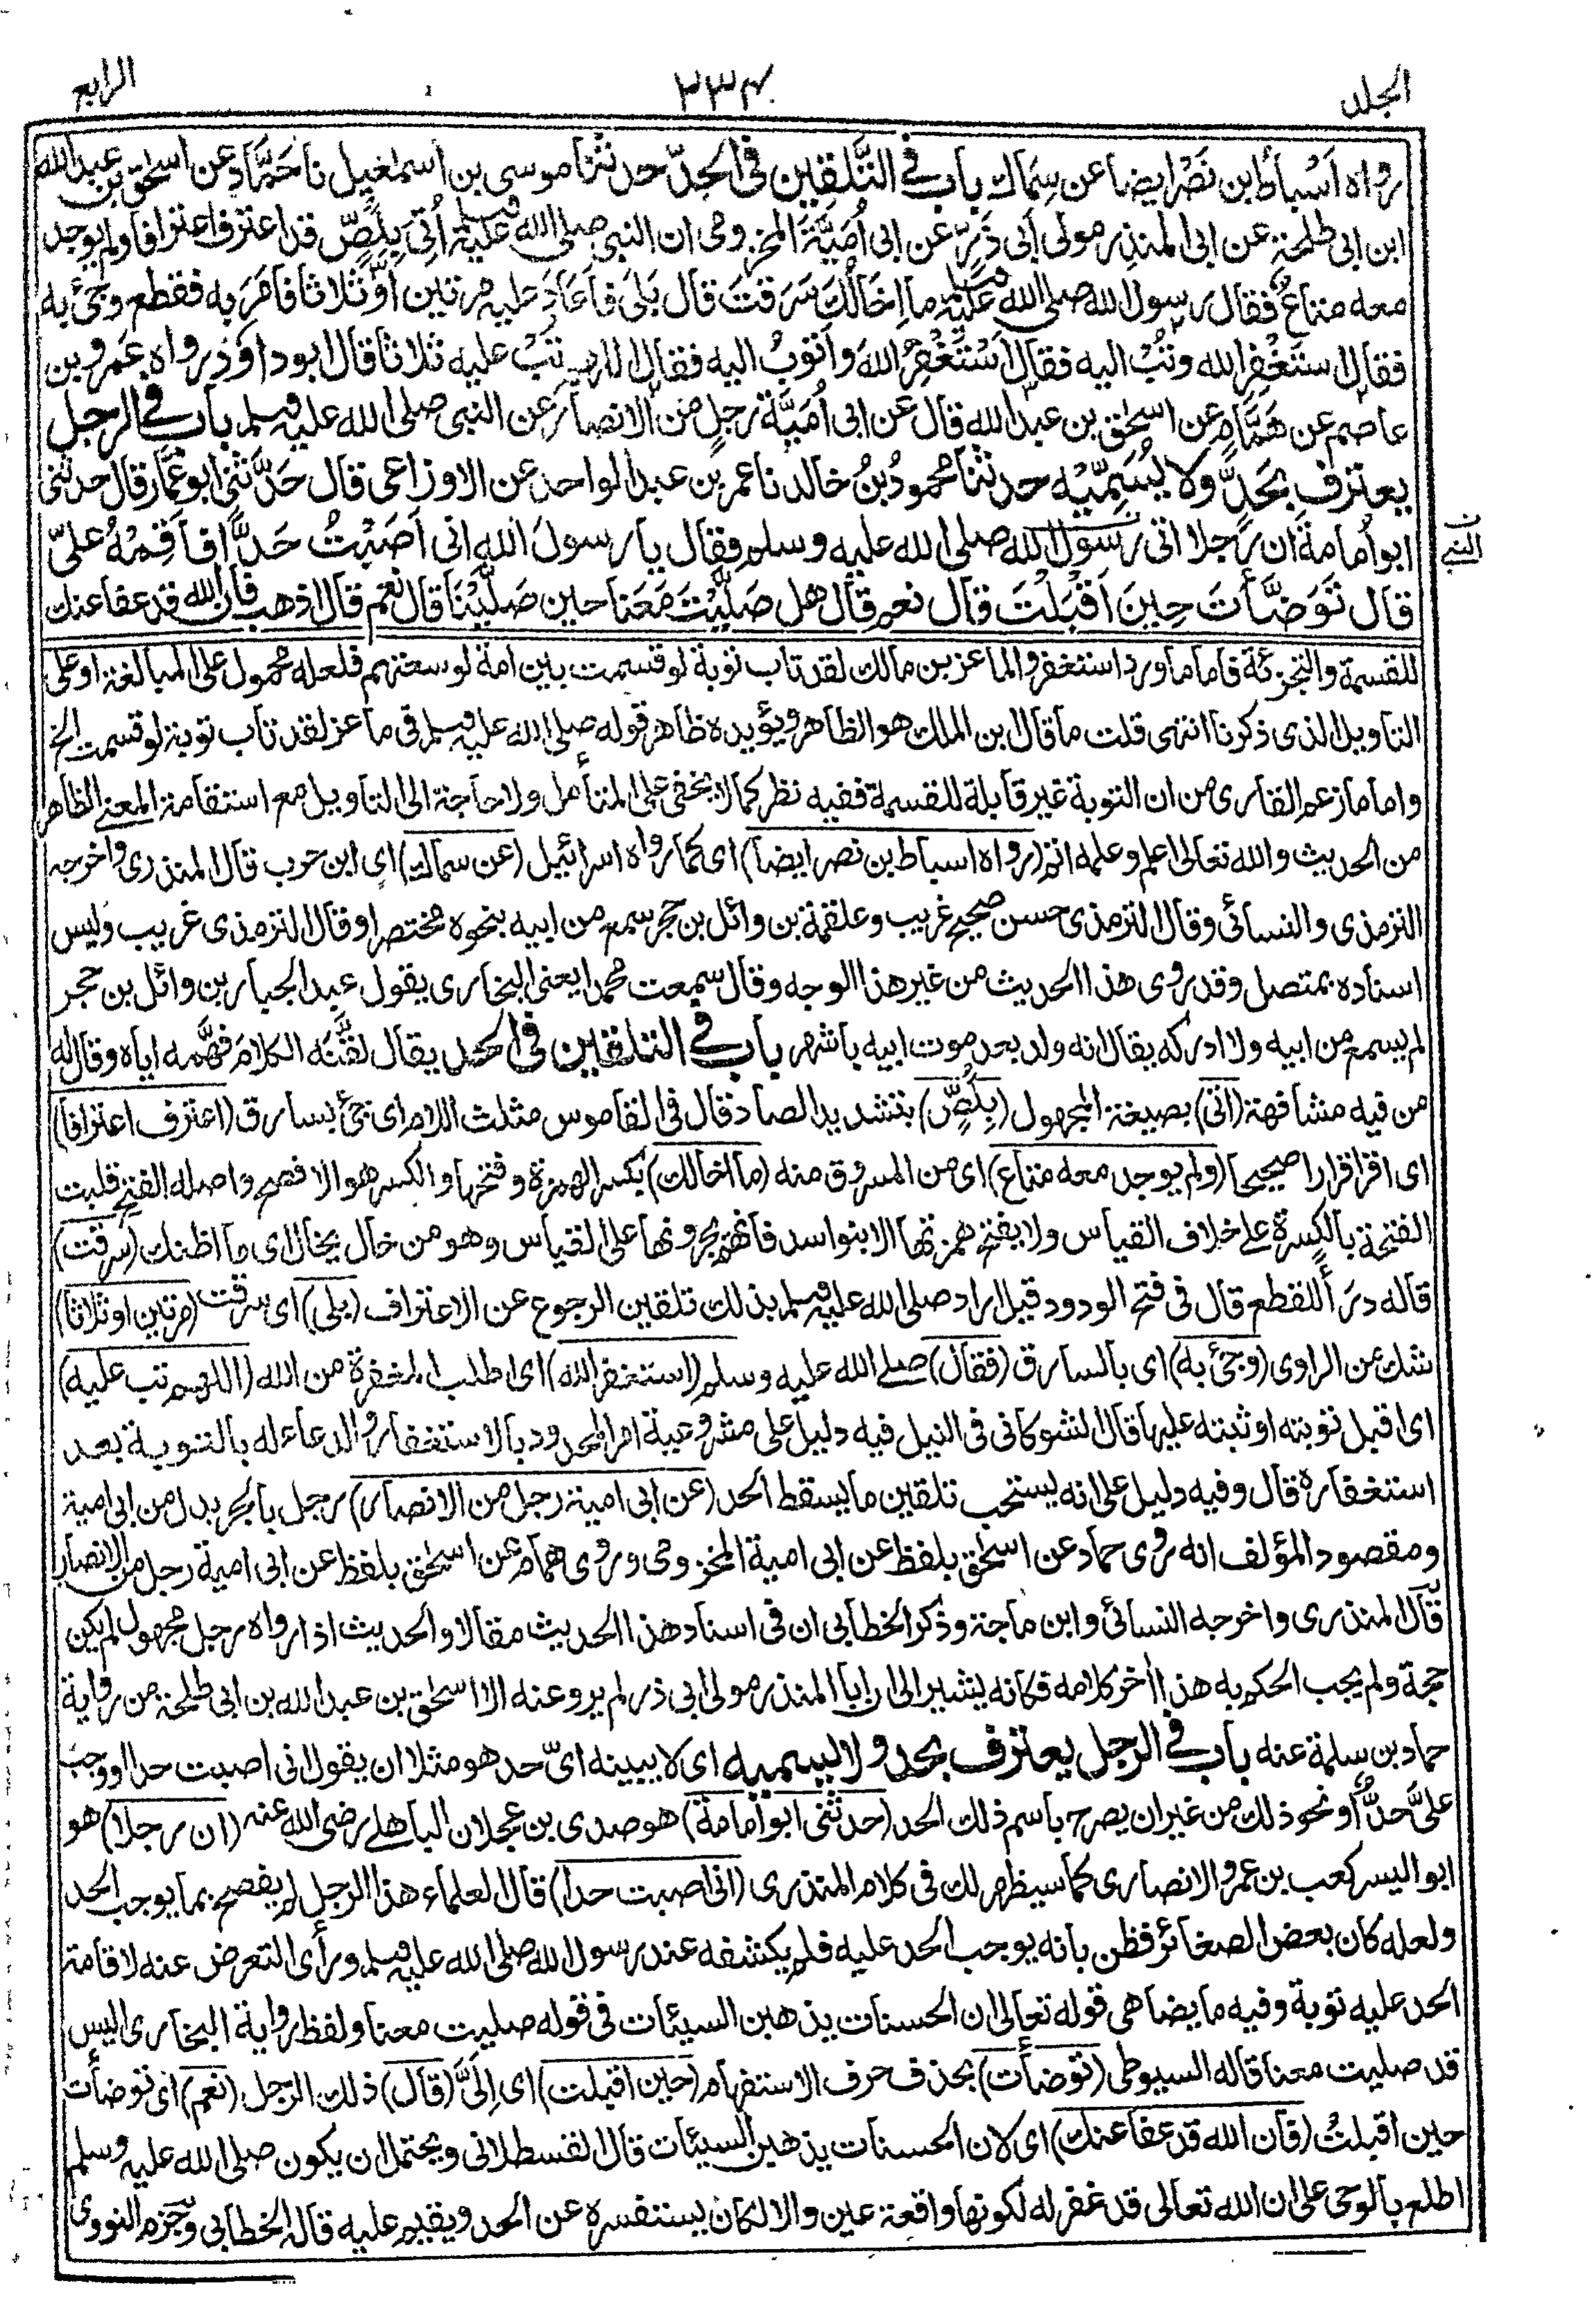 الجلد ٢٣٤ الرابع
رواه اَسْبَاطُ بن نَصْر ايضا عن سِمَاك باب في التَّلقِين في الحدّ حدثنا موسى بن اسمٰعيل نا حَمَّاد عن اسحٰق بن عبد الله
ابن ابى طلحة عن ابى المنذِر مولى اَبى ذَرٍّ عن ابى اُمَيَّةَ المخزومى ان النبى صلى الله عليه وسلم اُتِىَ بِلِصٍّ قد اعترف اعترافا ولم يوجد
معه متاعٌ فقال رسول الله صلى الله عليه وسلم ما اِخَالُكَ سَرَقتَ قال بَلَى فاَعَادَ عليه مرتين اَوْ ثلاثا فاَمَرَ به فقطع وجئ به
فقال استَغْفِرِ الله وتُبْ اليه فقال اَسْتَغْفِرُ اللهَ واَتوبُ اليه فقال اللهم تُبْ عليه ثلاثا قال ابو داؤد رواه عَمرو بن
عاصم عن هَمَّام عن اسحٰق بن عبد الله قال عن ابى اُمَيَّة رجلٍ من الانصار عن النبى صلى الله عليه وسلم باب في الرجل
يعترف بحَدٍّ ولا يُسَمِّيْه حدثنا محمودُ بنُ خالد نا عمر بن عبد الواحد عن الاوزاعى قال حَدَّثَنى ابو عَمَّار قال حدثنى
ابو اُمامةَ ان رَجلا اتى رسولَ الله صلى الله عليه وسلم فقال يا رسولَ الله انى اَصَبْتُ حَدًّا فاَقِمْهُ علىَّ
النبى
قال تَوَضَّأتَ حِينَ اَقْبَلْتَ قال نعم قال هل صَلَّيْتَ مَعَنا حين صَلَّيْنَا قال نعم قال اذهب فان الله قد عفا عنك
للقسمة والتجزئة فاما ما ورد استغفروا لماعز بن مالك لقد تاب توبة لو قسمت بين امة لوسعتهم فلعله محمول على المبالغة او على
التاويل الذى ذكرنا انتهى قلت ما قال ابن الملك هو الظاهر ويؤيده ظاهر قوله صلى الله عليه وسلم فى ماعز لقد تاب توبة لو قسمت الخ
واما ما زعم القارى من ان التوبة غير قابلة للقسمة ففيه نظر كما لا يخفى على المتأمل ولا حاجة الى التاويل مع استقامة المعنى الظاهر
من الحديث والله تعالى اعلم وعلمه اتم (رواه اسباط بن نصر ايضا) اى كما رواه اسرائيل (عن سماك) اى ابن حرب قال المنذرى واخرجه
الترمذى والنسائى وقال الترمذى حسن صحيح غريب وعلقمة بن وائل بن حجر سمع من ابيه بنحوه مختصرا وقال الترمذى غريب وليس
اسناده بمتصل وقد روى هذا الحديث من غير هذا الوجه وقال سمعت محمدا يعنى البخارى يقول عبد الجبار بن وائل بن حجر
لم يسمع من ابيه ولا ادركه يقال انه ولد بعد موت ابيه باشهر باب في التلقين في الحد يقال لَقَّنَه الكلامَ فَهَّمه اياه وقال له
من فيه مشافهة (اتى) بصيغة المجهول (بِلُصٍّ) بتشديد الصاد قال فى القاموس مثلث اللام اى جئ بسارق (اعترف اعترافا)
اى اقر اقرارا صحيحا (ولم يوجد معه متاع) اى من المسروق منه (ما اخالك) بكسر الهمزة وفتحها والكسر هو الافصح واصله الفتح قلبت
الفتحة بالكسرة على خلاف القياس ولا يفتح همزتها الا بنو اسد فانهم يجرونها على القياس وهو من خال يخال اى ما اظنك (سرقت)
قاله درَأ للقطع قال فى فتح الودود قيل اراد صلى الله عليه وسلم بذلك تلقين الرجوع عن الاعتراف (بلى) اى سرقت (مرتين او ثلاثا)
شك عن الراوى (وجئ به) اى بالسارق (فقال) صلى الله عليه وسلم (استغفر الله) اى اطلب المغفرة من الله (اللهم تب عليه)
اى اقبل توبته او ثبته عليها قال الشوكانى فى النيل فيه دليل على مشروعية امر المحدود بالاستغفار والدعاء له بالتوبة بعد
استغفاره قال وفيه دليل على انه يستحب تلقين ما يسقط الحد (عن ابى امية رجل من الانصار) رجل بالجر بدل من ابى امية
ومقصود المؤلف انه روى حماد عن اسحٰق بلفظ عن ابى امية المخزومى وروى همام عن اسحٰق بلفظ عن ابى امية رجل من الانصار
قال المنذرى واخرجه النسائى وابن ماجة وذكر الخطابى ان فى اسناد هذا الحديث مقالا والحديث اذا رواه رجل مجهول لم يكن
حجة ولم يجب الحكم به هذا اٰخر كلامه فكانه يشير الى ان ابا المنذر مولى ابى ذر لم يرو عنه الا اسحٰق بن عبد الله بن ابى طلحة من رواية
حماد بن سلمة عنه باب في الرجل يعترف بحد ولا يسميه اى لا يبينه اىّ حد هو مثلا ان يقول انى اصبت حدا او وجب
علىَّ حدٌّ او نحو ذلك من غير ان يصرح باسم ذلك الحد (حدثنى ابو اُمامة) هو صدى بن عجلان الباهلى رضى الله عنه (ان رجلا) هو
ابو اليسر كعب بن عمرو الانصارى كما سيظهر لك فى كلام المنذرى (انى اصبت حدا) قال العلماء هذا الرجل لم يفصح بما يوجب الحد
ولعله كان بعض الصغائر فظن بانه يوجب الحد عليه فلم يكشفه عند رسول الله صلى الله عليه وسلم ورأى التعرض عنه لاقامة
الحد عليه توبة وفيه ما يضاهى قوله تعالى ان الحسنات يذهبن السيئات فى قوله صليت معنا ولفظ رواية البخارى اليس
قد صليت معنا قاله السيوطى (توضأت) بحذف حرف الاستفهام (حين اقبلت) اى اِلىَّ (قال) ذلك الرجل (نعم) اى توضأت
حين اقبلتُ (فان الله قد عفا عنك) اى لان الحسنات يذهبن السيئات قال القسطلانى ويحتمل ان يكون صلى الله عليه وسلم
اطلع بالوحى على ان الله تعالى قد غفر له لكونها واقعة عين والا لكان يستفسره عن الحد ويقيم عليه قاله الخطابى وجزم النووى